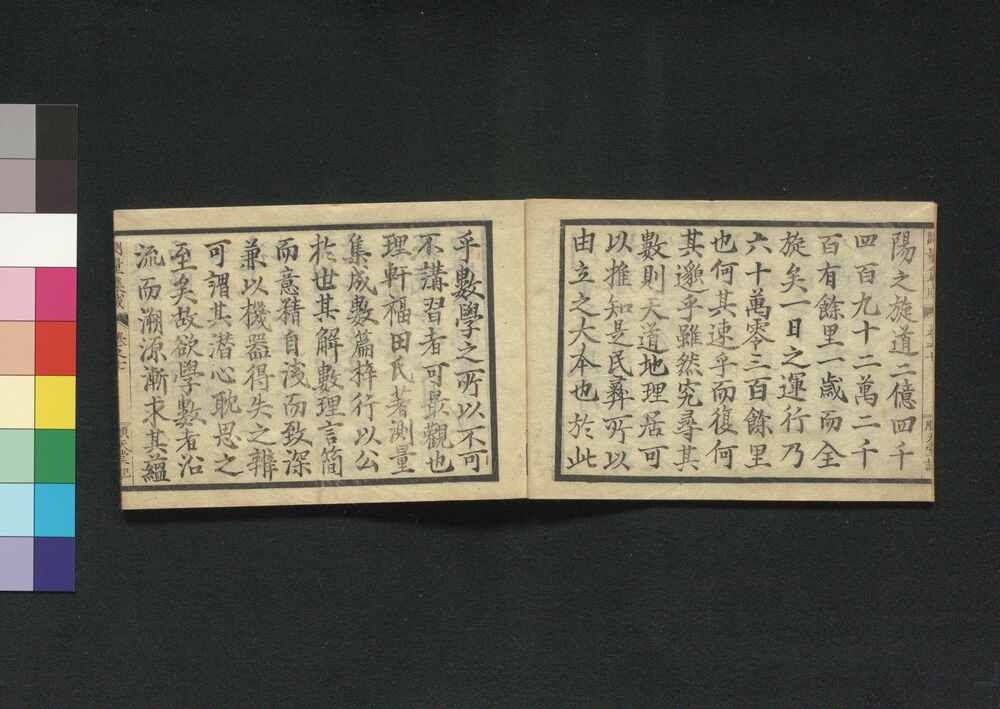 陽之旋道二億四千
四百九十二萬二千
百有餘里一歳而全
旋矣一日之運行乃
六十萬零三百餘里
也何其速乎而復何
其邈乎雖然究尋其
數則天道地理居可
以推知是民彛所以
由立之大本也於此
乎數學之所以不可
不講習者可最觀也
理軒福田氏著測量
集成數篇梓行以公
於世其解數理言簡
而意精自淺而致深
兼以機器得失之辨
可謂其潜心耽思之
至矣故欲學數者沿
流而溯源漸求其蘊